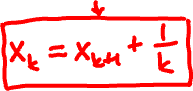 x_k = x_{k+1} + \frac{1}{k}